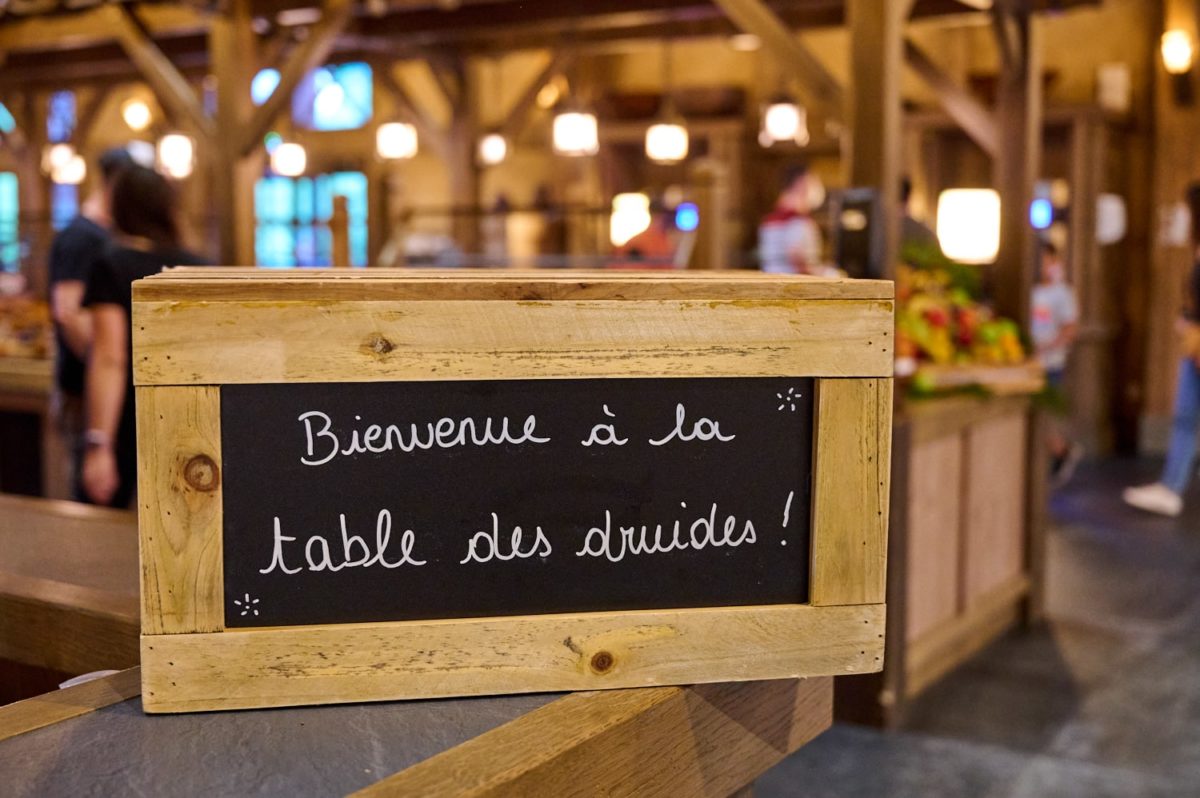 Bienvenue à la
table des druides !